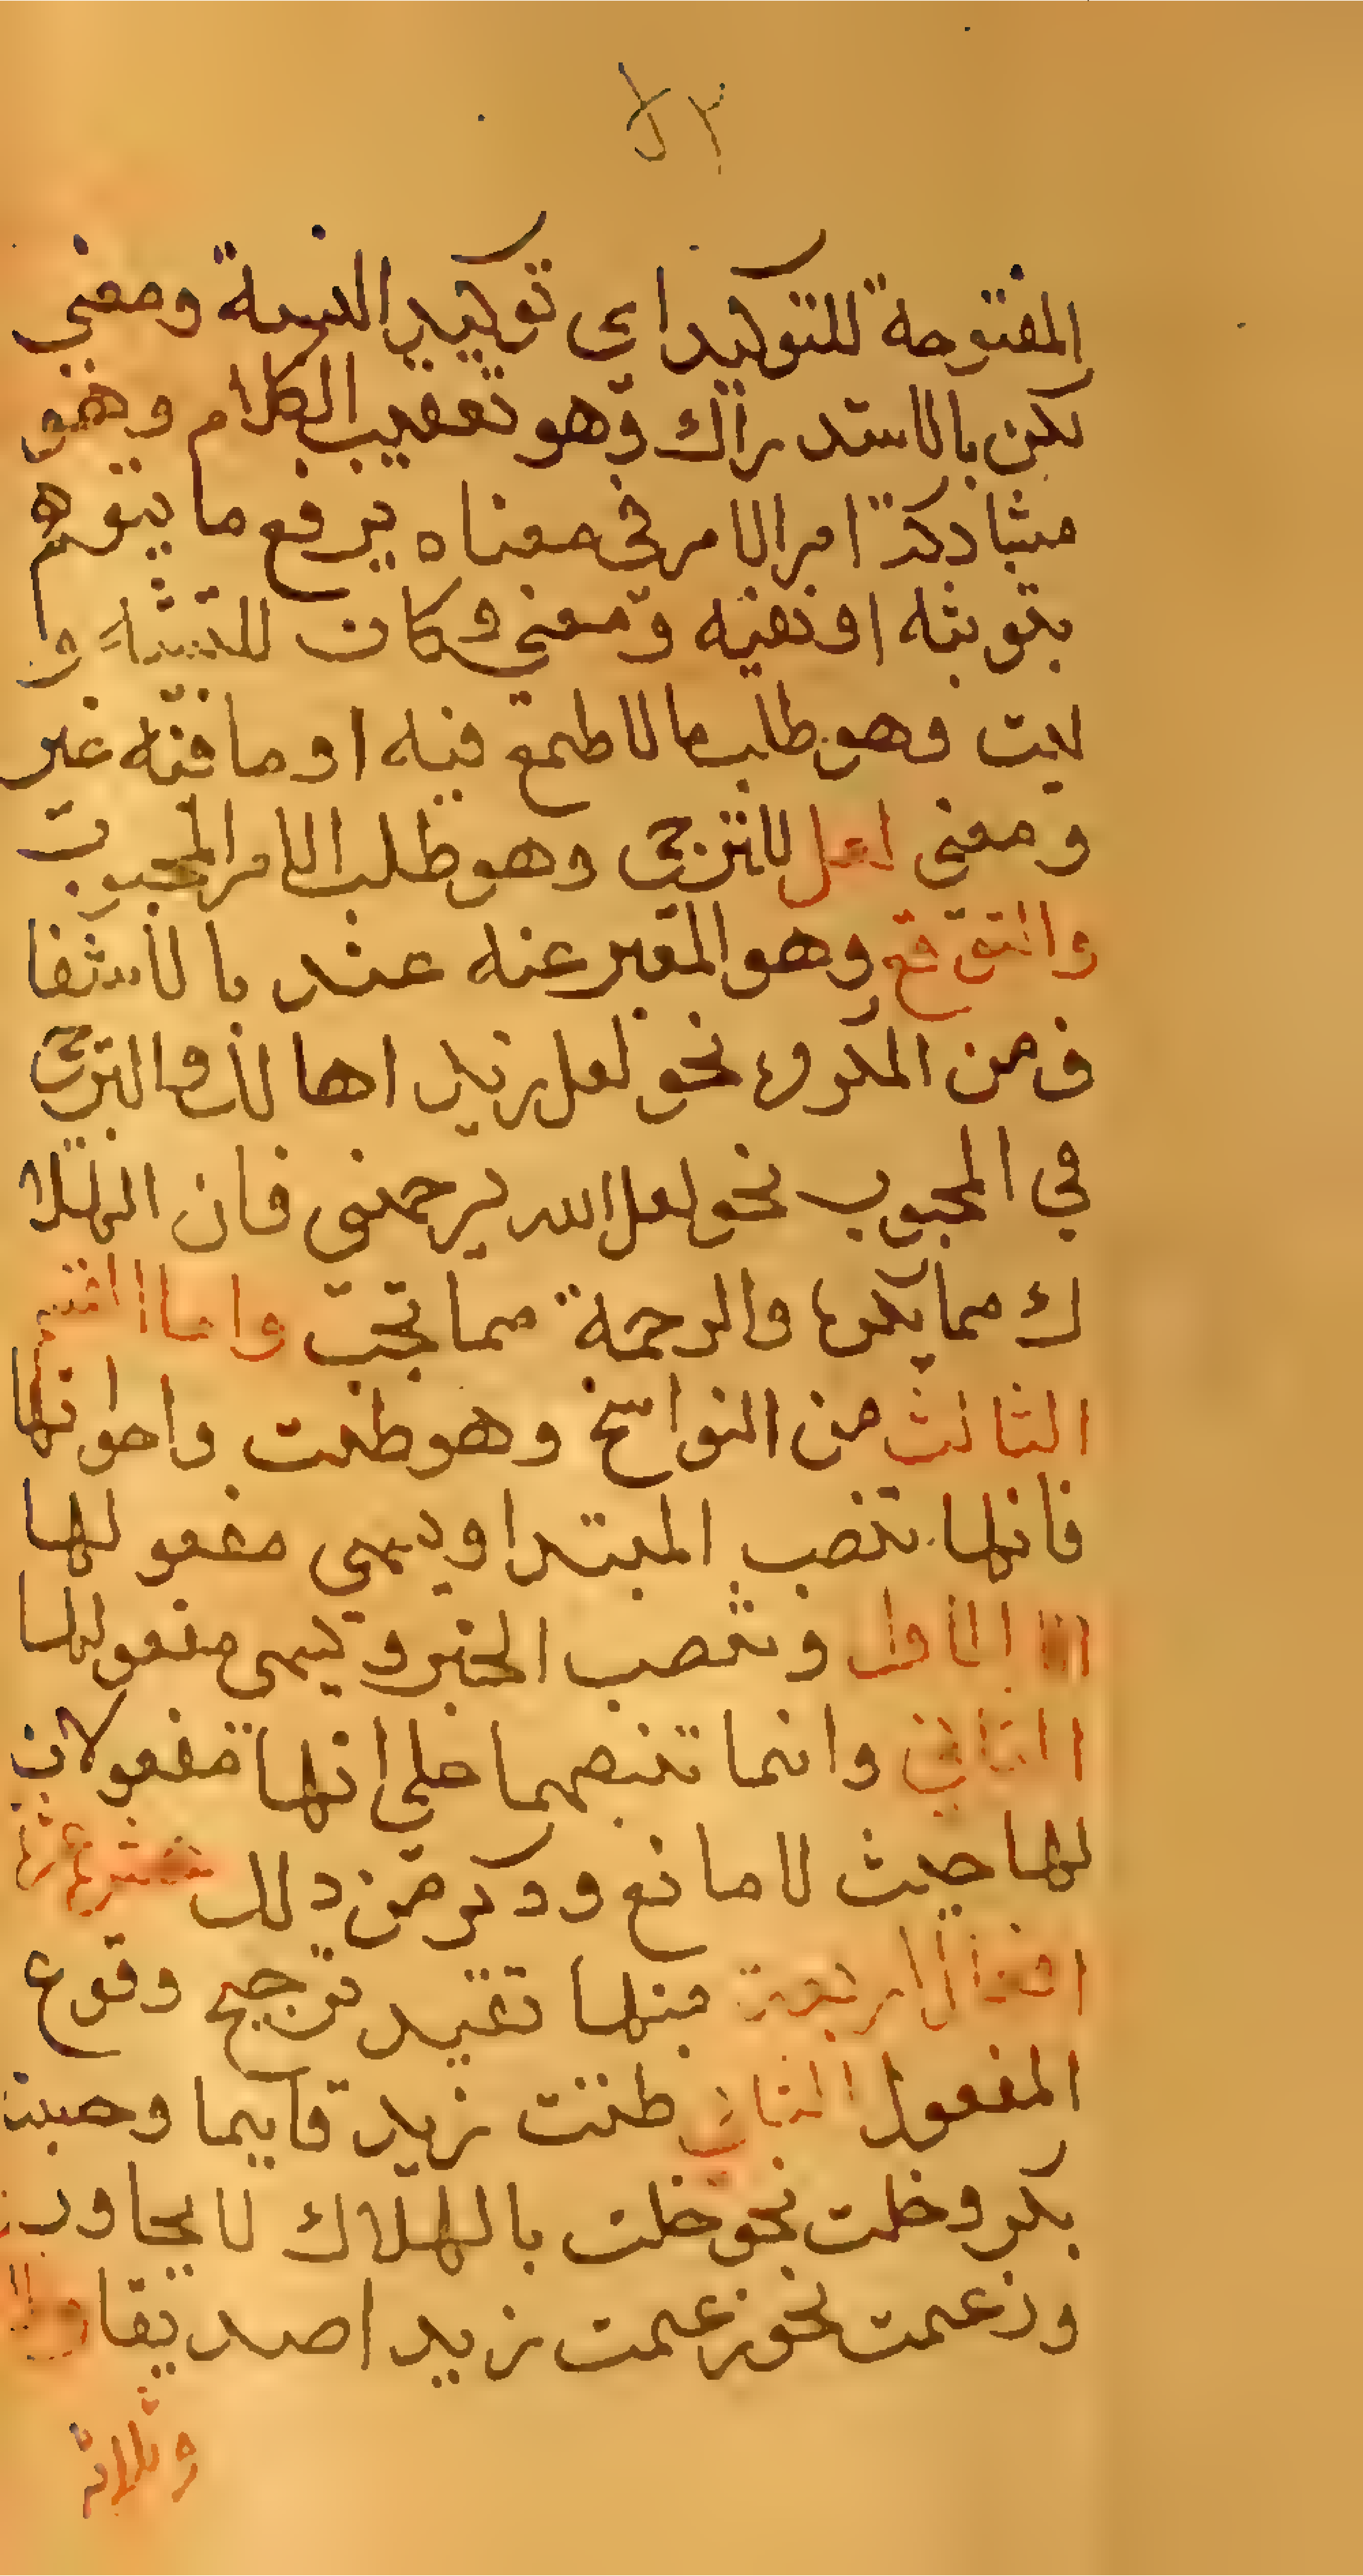 المفتوحة للتوكيد اي توكيد النسبة ومعني
لكن بالاستدراك وهو تعقيب الكلام وهو
امر الامر في معناه يرفع ما يتوهم
بثوبته او نفيه ومعني وكان للتشبه و
ليت وهو طلب ما لا طمع فيه او ما فيه غير
ومعني لعل للترجي وهو طلب الامر المحبوب
والتوقع وهو المعبر عنه عند بالاشفا
ق من المكروه نحو لعل زيد اهالك والترجي
في المحبوب نحو لعل الله يرحمني فان الهلا
ك مما يكره والرحمة مما تحب واما القسم
الثالث من النواسخ وهو ظننت واخواتها
فانها تنصب المبتدا ويسمي مفعولها
الاول وتنصب الخبر ويسمي مفعولها
الثاني وانما تنصبهما علي انها مفعولان
لها حيث لا مانع وذكر من ذلك
افعال اربعة منها تفيد ترجيح وقوع
المفعول الثاني ظننت زيد قايما وحسبت
بكر وخلت نحو خلت بالهلاك لا
وزعمت نحو زعمت زيد اصديقا
وثلاثة